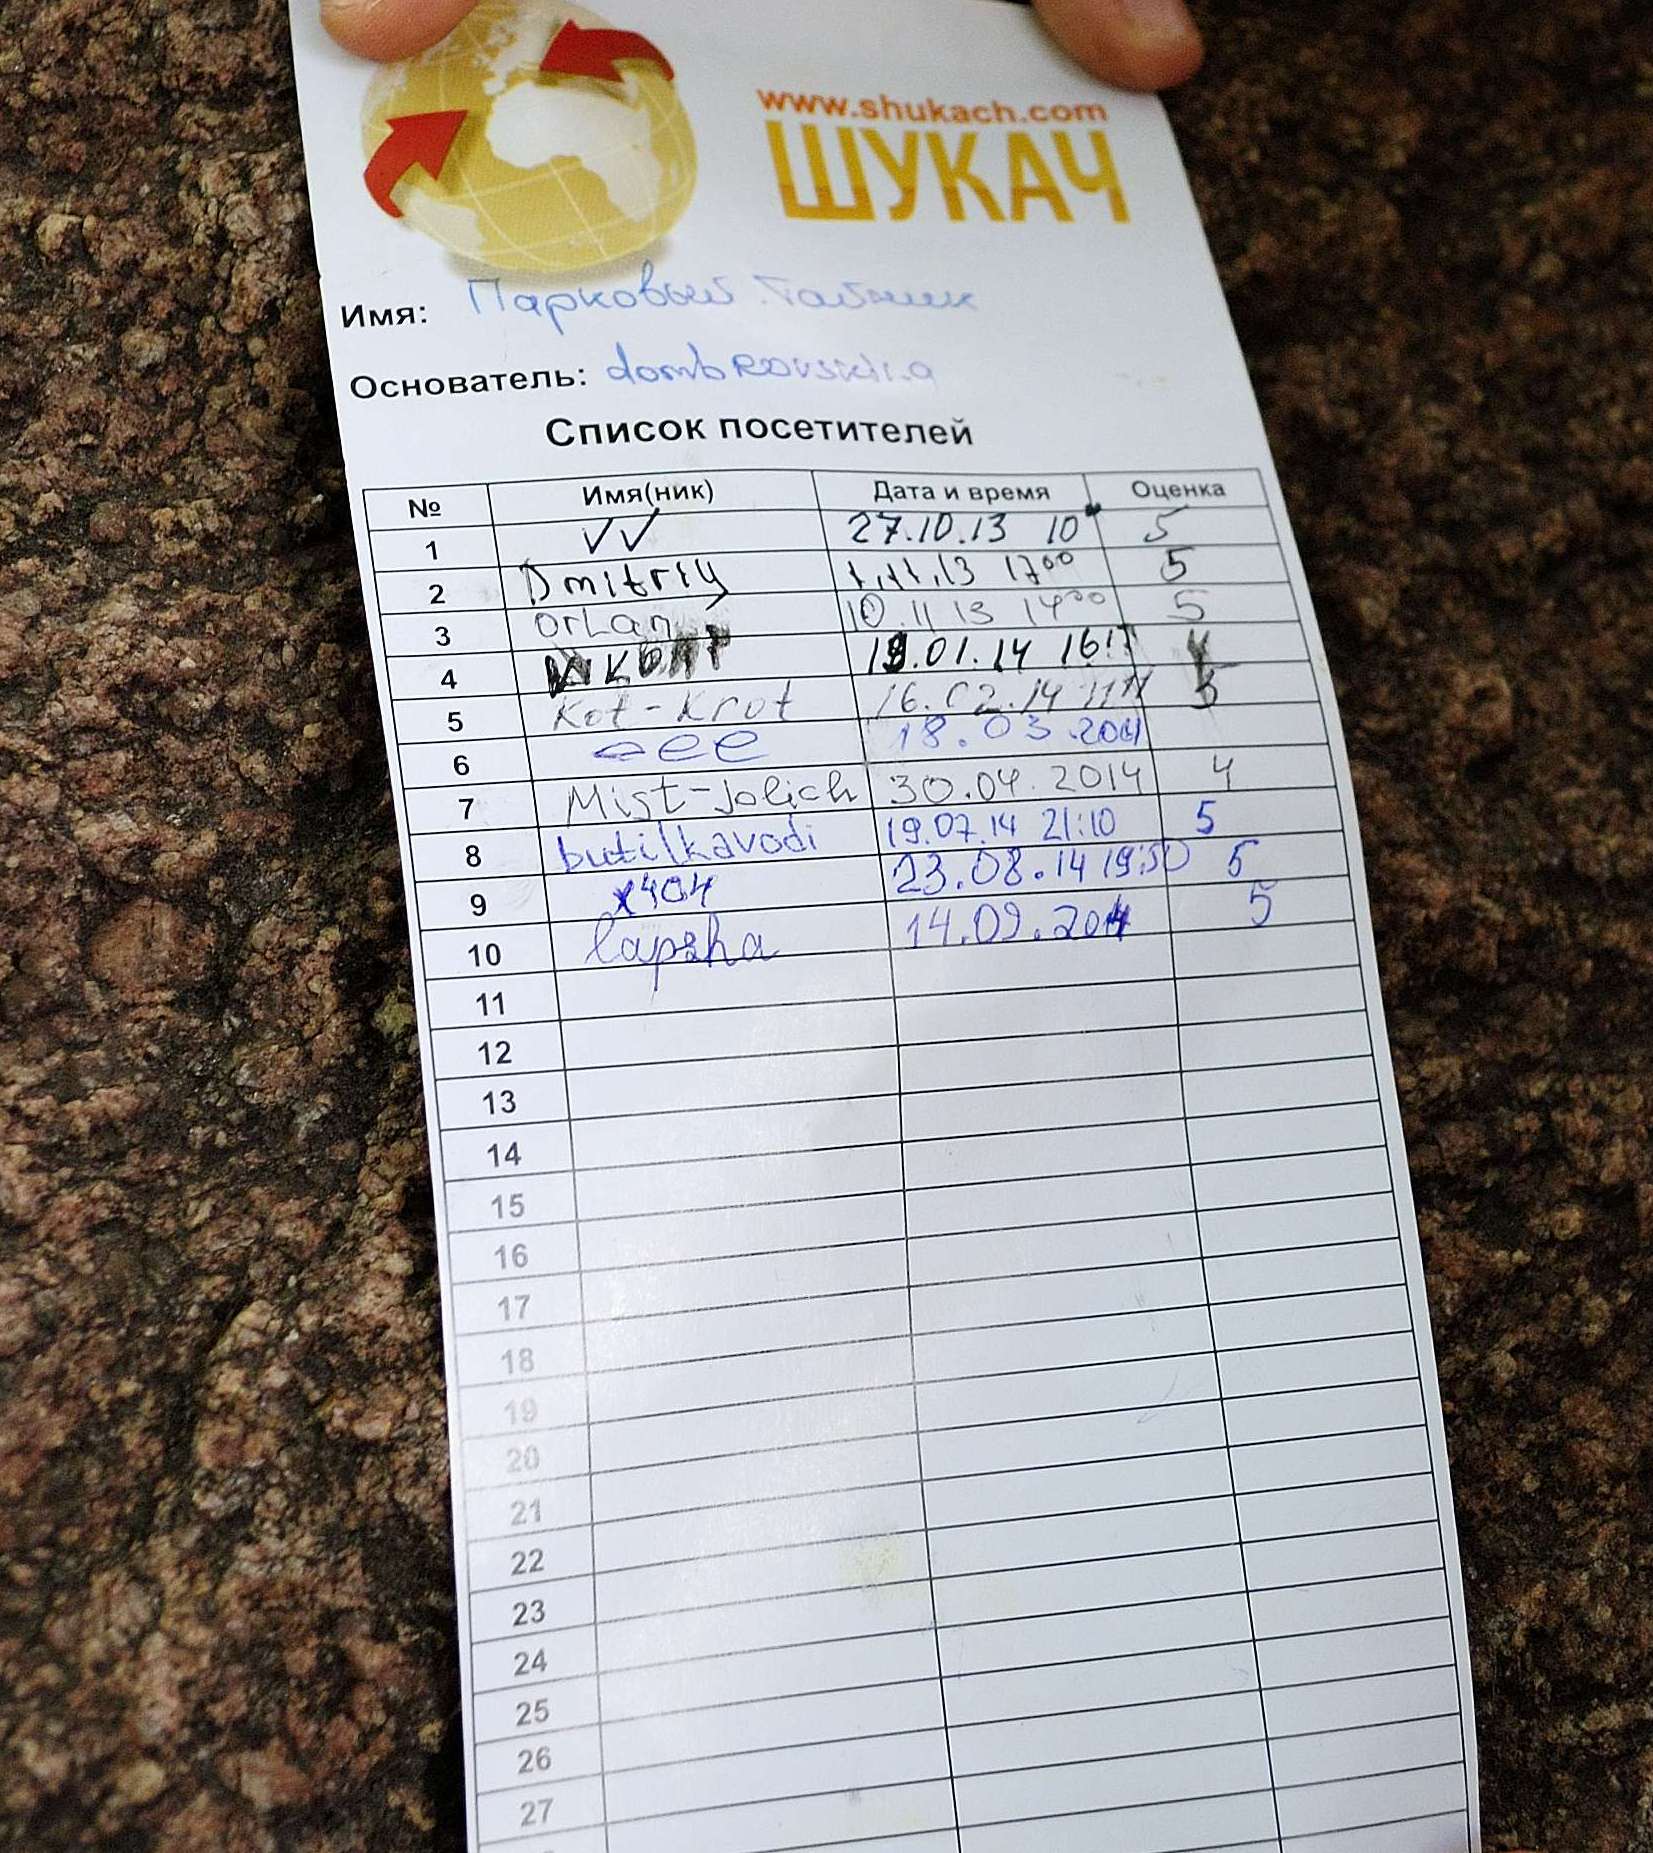 www.shukach.com
ШУКАЧ
Имя: Парковый
Основатель:
Список посетителей
№ Имя(ник) Дата и время Оценка
1 VV 27.10.13 10 5
2 Dmitriy 1.11.13 17 00 5
3 orLan 10.11 13 14 00 5
4 .01.14
5 Kot-Krot 16.02.14 5
6 eee 18.03.2014
7 Mist-Jolich 30.04.2014 4
8 butilkavodi 19.07.14 21:10 5
9 x404 23.08.14 19:50 5
10 lapsha 14.09.2014 5
11
12
13
14
15
16
17
18
19
20
21
22
23
24
25
26
27